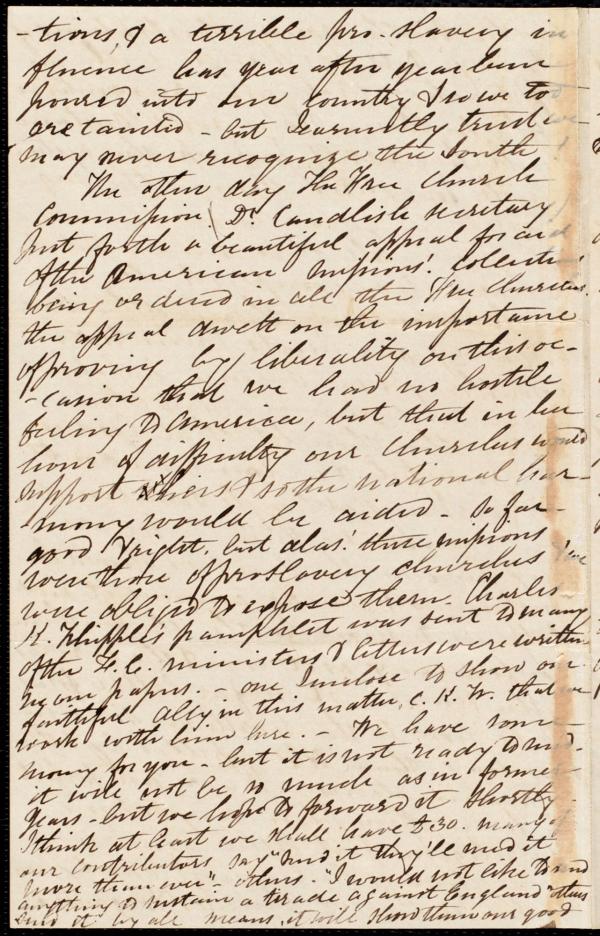 -tions, & a terrible pro-slavery in
fluence has year after year been
poured into our country & so we too
are tainted - but I earnestly trust we
may never recognize the South!
The other day The Free Church
Commission (Dr. Candlish secretary)
put forth a beautiful appeal for aid
of the American missions! Collections
being ordered in all the Free Churches.
the appeal dwelt on the importance
of proving by liberality on this oc-
-casion that we had no hostile
feeling to America, but that in her
hour of difficulty our churches would
support theirs & so the national har-
-mony would be aided - So far
good & right, but alas! these missions
were those of proslavery churches & we
were obliged to expose them. Charles
K. Whipple's pamphlet was sent to many
of the F. C. ministers & letters were written
in our papers. - one I enclose to show our
faithful ally in this matter, C. K. W. that we
work with him here. - We have some
money for you - but it is not ready to send -
it will not be so much as in former
years - but we hope to forward it shortly.
I think at least we shall have £30. many of
our contributors say "send it they'll need it
more than ever" - others - "I would not like to send
anything to sustain a tirade against England" others
send it by all means, it will show them our good